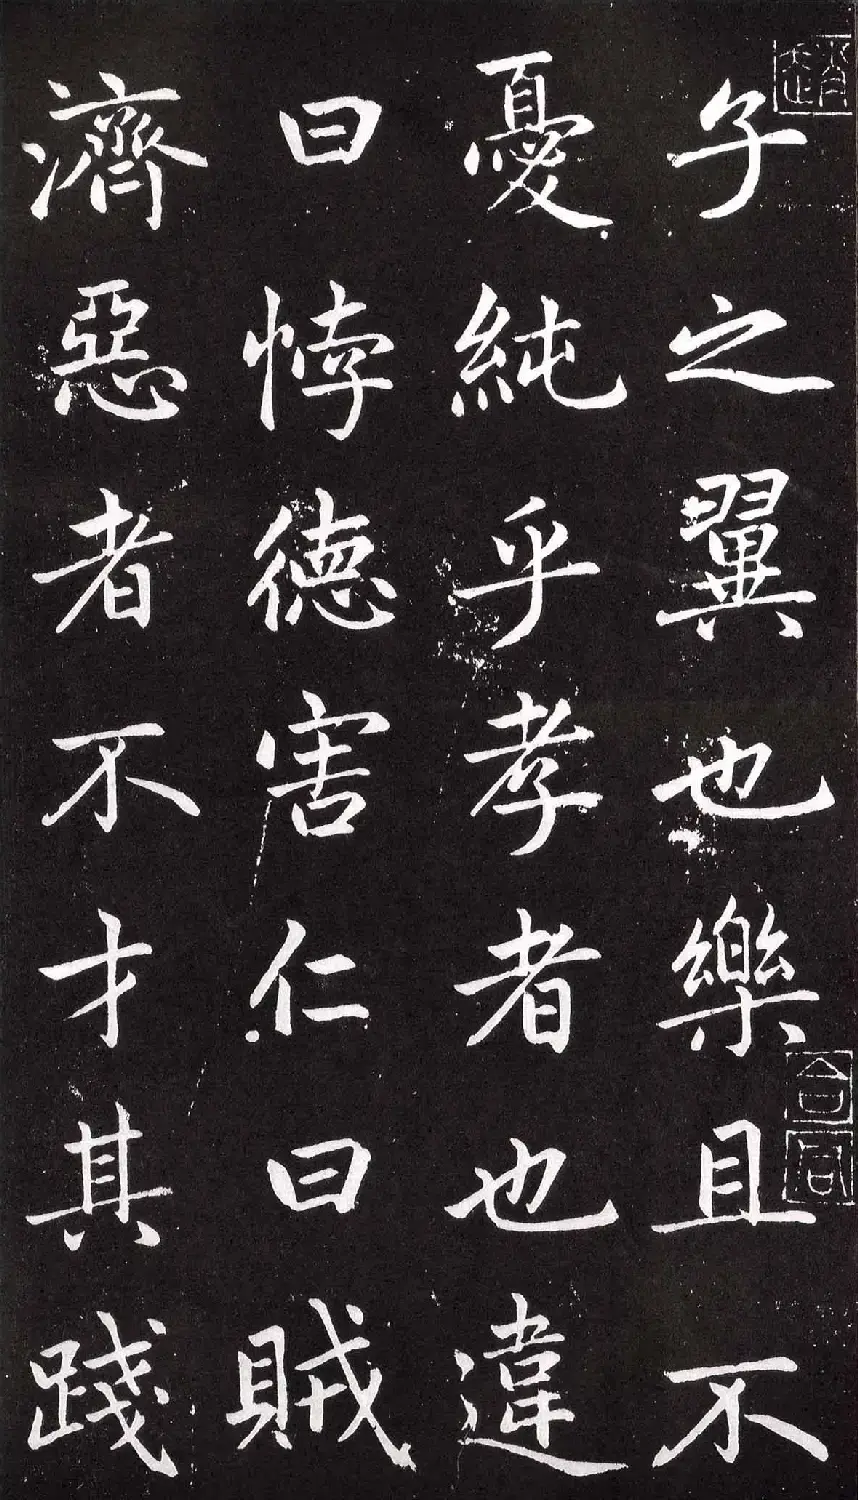 子之翼也樂且不
憂純乎孝者也違
曰悖德害仁曰賊
濟惡者不才其踐
合同